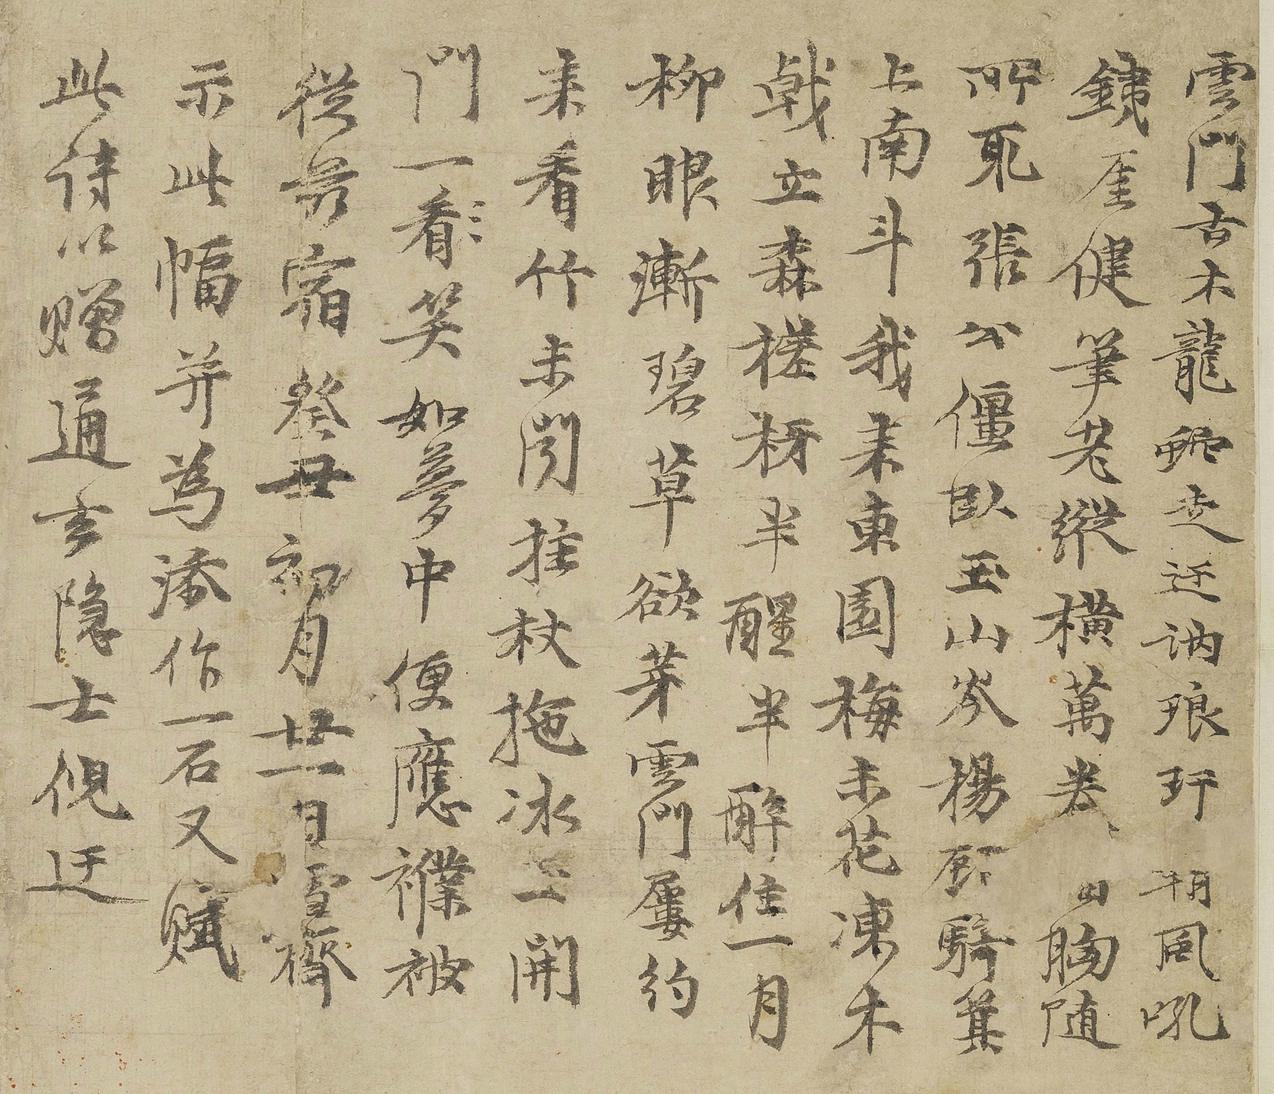 雲門古木龍蛇走迂訥琅玕朔風吼
鐵厓健筆老縱橫萬卷胸隨
所取張公僵臥玉山岑楊顧騎箕
上南斗我来東園梅未花凍木
戟立森槎枒半醒半醉住一月
柳眼漸碧草欲芽雲門屢約
来看竹未閒拄杖拖冰二開
門一看看笑如夢中便應襆被
從茲宿癸丑初月廿一日雪齋
示此幅并為添作一石又賦
此詩以贈通玄隐士倪迂